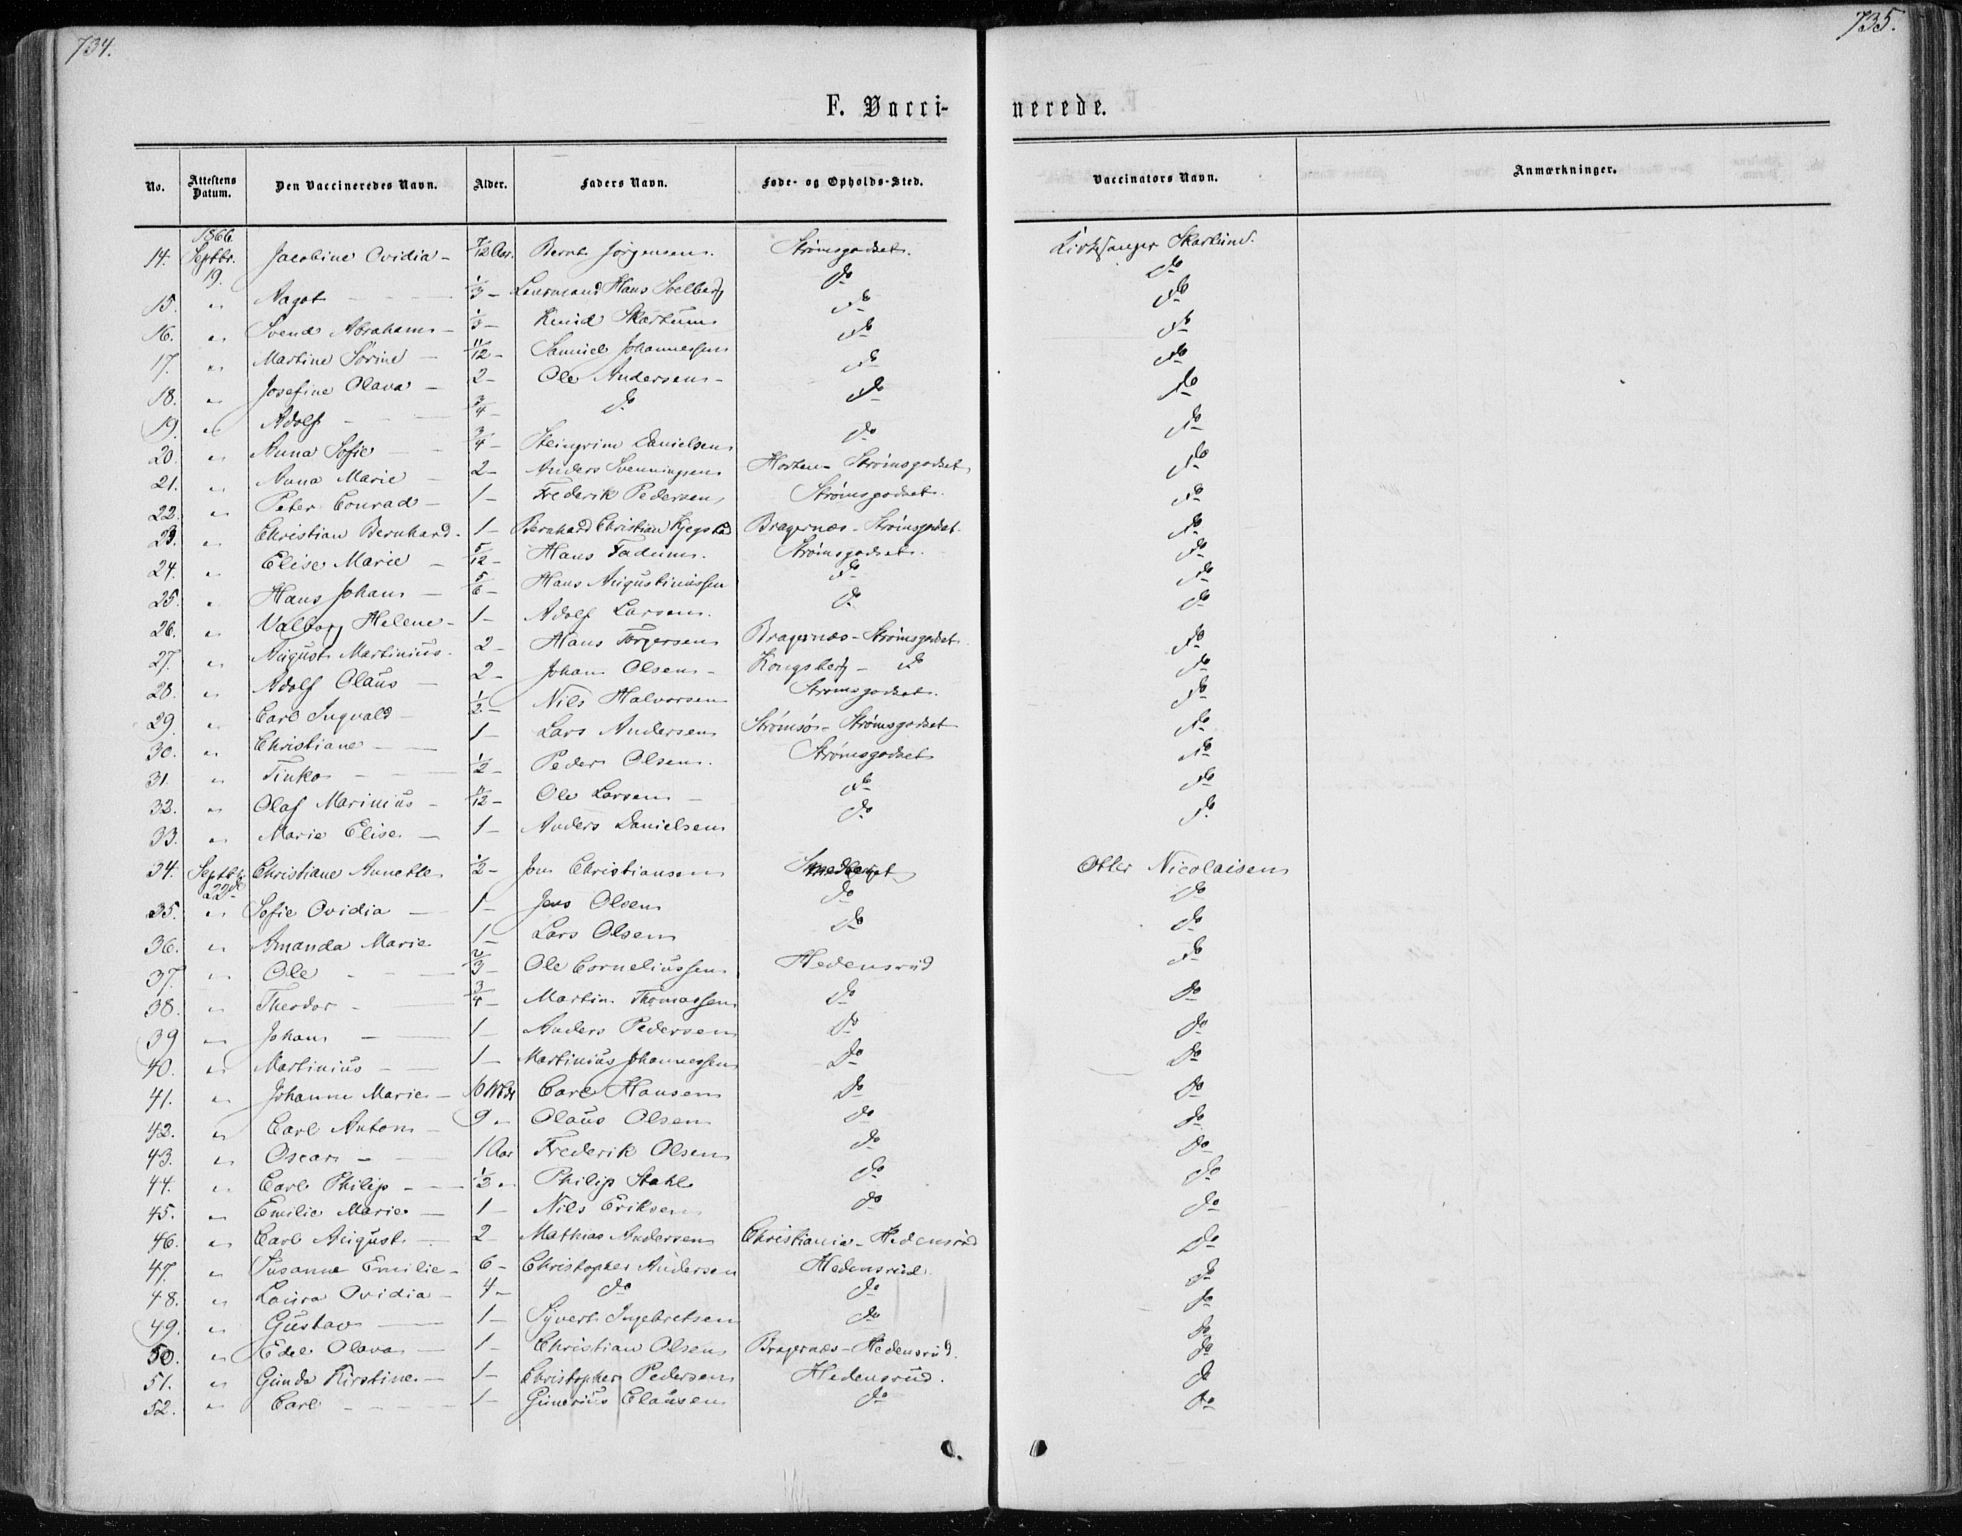 734.
735.
F. Vacci-
nerede.
No. Attestens Datum. Den Vaccineredes Navn. Alder. Faders Navn. Føde- og Opholds-Sted. Vaccinators Navn. Anmærkninger.
1866.
14. Septbr. 19. Jacobine Ovidia - 7/12 Aar. Bernt Jörgensen. Strömsgodset. Kirkesanger Skarlund.
15. " Aagot - 1/3 - Lensmand Hans Solberg do do
16. " Svend Abraham - 1/3 - Knud Skartum do do
17. " Martine Sörine - 11/12 - Samuel Johannessen do do
18. " Josefine Olava - 2 - Ole Andersen - do do
19. " Adolf - 3/4 - do do do
20. " Anna Sofie - 3/4 - Steingrim Danielsen do do
21. " Anna Marie - 2 - Anders Svenningsen Horten - Strömsgodset do
22. " Peter Conrad - 1 - Frederik Pedersen Strömsgodset. do
23. " Christian Bernhard. 1 - Bernhard Christian Bragernæs - Strömsgodset. do
24. " Elise Marie - 5/12 - Hans Fadum. Strömsgodset. do
25. " Hans Johan - 5/6 - Hans Augustinussen do do
26. " Valborg Helene - 1 - Adolf Larsen. do do
27. " August Martinius. 2 - Hans Torgersen Bragernæs - Strömsgodset. do
28. " Adolf Olaus - 2 - Johan Olsen - Kongsberg - do do
29. " Carl Ingvald - 1/2 - Nils Halvorsen Strömsgodset. do
30. " Christiane - 1 - Lars Andersen Strömsö - Strömsgodset do
31 " Tinka - 1/2 - Peder Olsen. Strömsgodset do
32. " Olaf Marinius - 11/12 - Ole Larsen - do do
33. " Marie Elise. - 1 - Anders Danielsen do do
34. Septbr. 22de Christiane Annette 1/2 - Jens Christiansen Otter Nicolaisen
35. " Sofie Ovidia - 1 - Jens Olsen do do
36. " Amanda Marie 1 - Lars Olsen do do
37. " Ole - 2/3 - Ole Corneliussen Hedensrud do
38. " Theodor - 3/4 - Martin Thomassen do do
39 " Johan - 1 - Anders Pedersen do do
40. " Martinius - 1 - Martinius Johannessen do do
41. " Johanne Marie - 10 Mdr Carl Hansen do do
42. " Carl Anton - 9 " Olaus Olsen do do
43. " Oscar - 1 Aar Frederik Olsen do do
44. " Carl Philip - 1/3 " Philip Stahl do do
45. " Emilie Marie - 1 - Nils Eriksen do do
46. " Carl August - 2 - Mathias Andersen Christiania - Hedensrud do
47. " Susanne Emilie - 6 - Christopher Andersen Hedensrud. do
48. " Laura Ovidia - 4 - do do do
49. " Gustav - 1 - Syvert Ingebretsen do do
50. " Edel Olava - 1 - Christian Olsen Bragernæs - Hedensrud. do
51. " Gunda Kirstine - 1 - Christopher Pedersen Hedensrud. do
52. " Carl - 1 - Gunerius Clausen do do